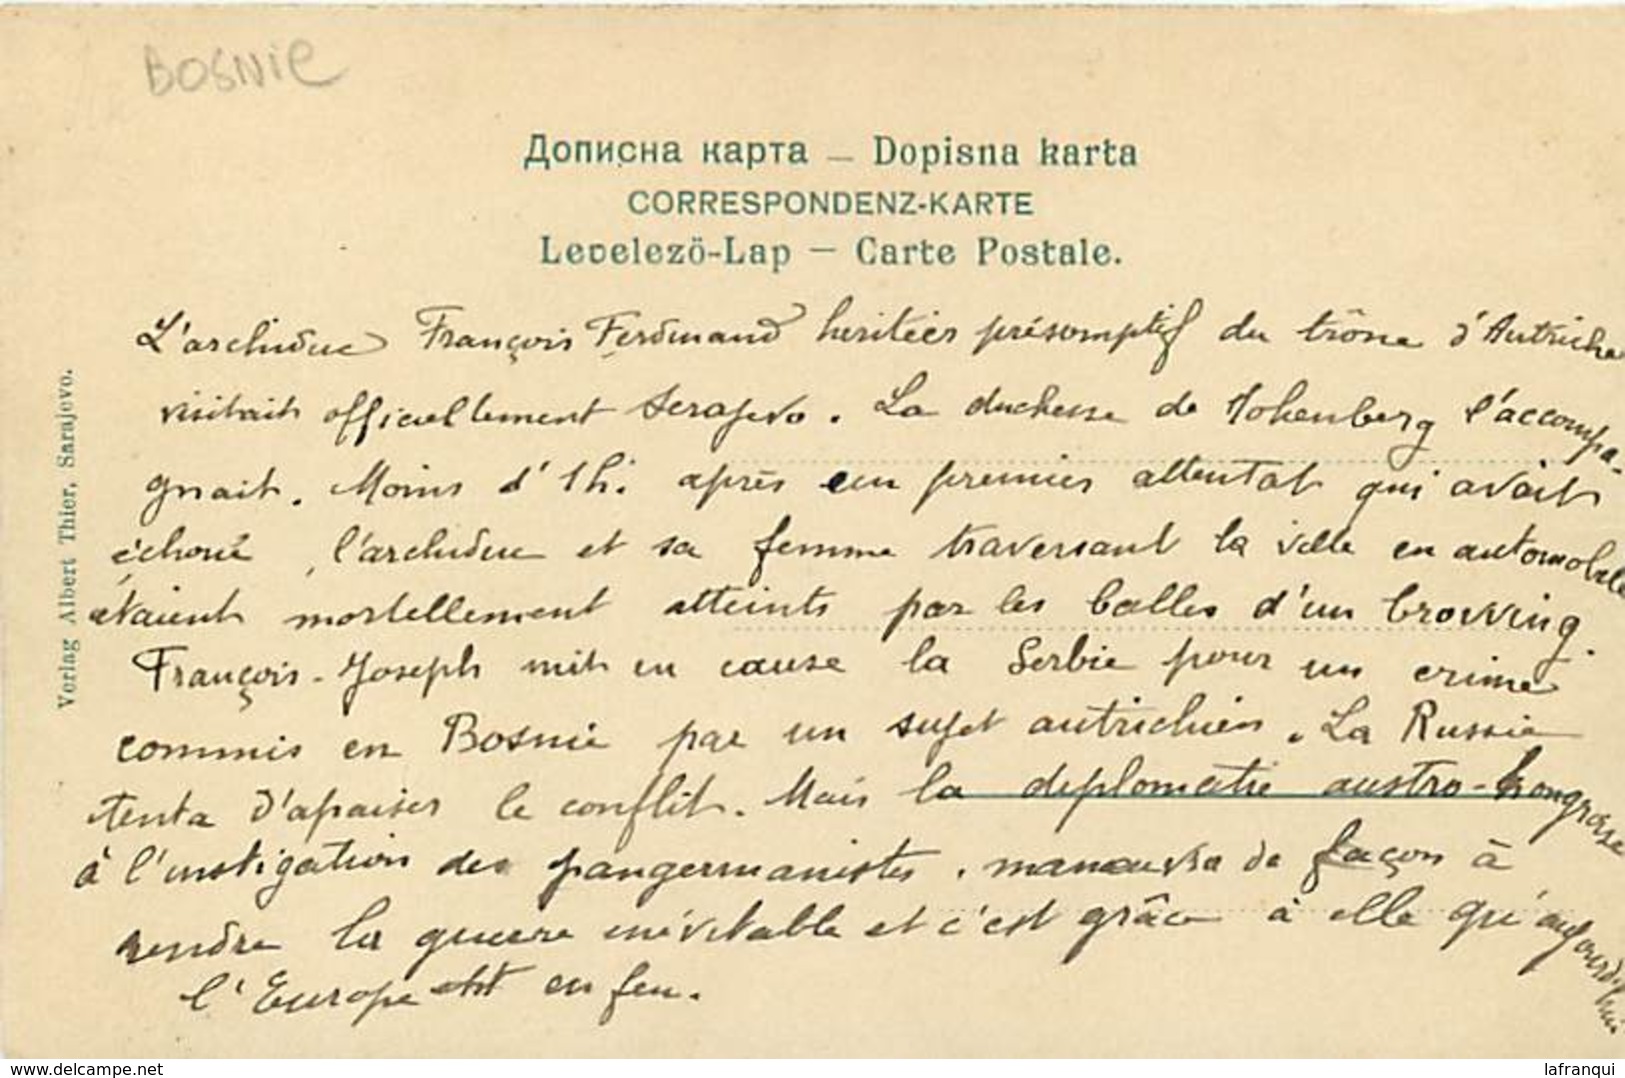 BOSNIE
Дописна карта — Dopisna karta
CORRESPONDENZ-KARTE
Levelezö-Lap — Carte Postale.
Verlag Albert Thier, Sarajevo.
L'archiduc François Ferdinand héritier présomptif du trône d'Autriche
visitait officiellement Serajevo. La duchesse de Hohenberg l'accompa-
gnait. Moins d'1h. après un premier attentat qui avait
échoué, l'archiduc et sa femme traversant la ville en automobile
étaient mortellement atteints par les balles d'un browing.
François-Joseph mit en cause la Serbie pour un crime
commis en Bosnie par un sujet autrichien. La Russie
tenta d'apaiser le conflit. Mais la diplomatie austro-hongroise
à l'instigation des pangermanistes, manœuvra de façon à
rendre la guerre inévitable et c'est grâce à elle qu'aujourd'hui
l'Europe est en feu.
www.delcampe.net
lafranqui